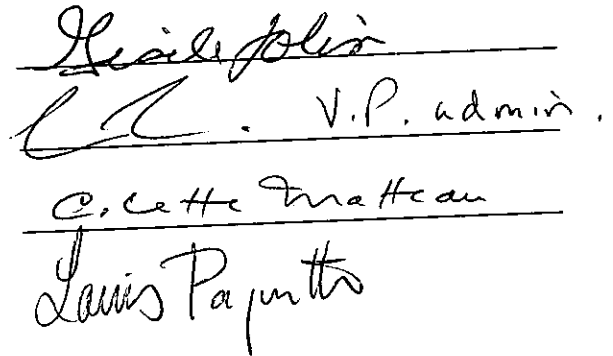 Gisèle Jolin
V.P. admin.
Colette Matteau
Louis Paquette